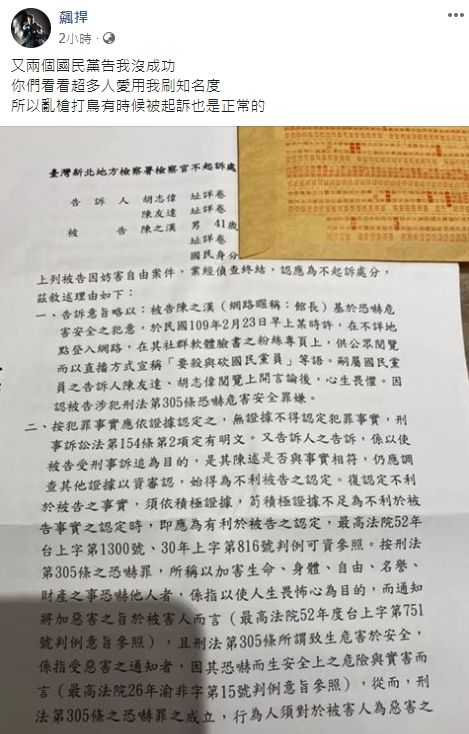 飆捍
2小時
又兩個國民黨告我沒成功
你們看看超多人愛用我刷知名度
所以亂槍打鳥有時候被起訴也是正常的
臺灣新北地方檢察署檢察官不起訴處
告訴人 胡志偉 址詳卷
陳友達 址詳卷
被告 陳之漢 男 41歲
址詳卷
國民身分
上列被告因妨害自由案件，業經偵查終結，認應為不起訴處分，
茲敘述理由如下：
一、告訴意旨略以：被告陳之漢（網路暱稱：館長）基於恐嚇危
害安全之犯意，於民國109年2月23日早上某時許，在不詳地
點登入網路，在其社群軟體臉書之粉絲專頁上，供公眾閱覽
而以直播方式宣稱「要殺與砍國民黨員」等語。嗣屬國民黨
員之告訴人陳友達、胡志偉閱覽上開言論後，心生畏懼。因
認被告涉犯刑法第305條恐嚇危害安全罪嫌。
二、按犯罪事實應依證據認定之，無證據不得認定犯罪事實，刑
事訴訟法第154條第2項定有明文。又告訴人之告訴，係以使
被告受刑事訴追為目的，是其陳述是否與事實相符，仍應調
查其他證據以資審認，始得為不利被告之認定。復認定不利
於被告之事實，須依積極證據，苟積極證據不足為不利於被
告事實之認定時，即應為有利於被告之認定，最高法院52年
台上字第1300號、30年上字第816號判例可資參照。按刑法
第305條之恐嚇罪，所稱以加害生命、身體、自由、名譽、
財產之事恐嚇他人者，係指以使人生畏怖心為目的，而通知
將加惡害之旨於被害人而言（最高法院52年度台上字第751
號判例意旨參照），且刑法第305條所謂致生危害於安全，
係指受惡害之通知者，因其恐嚇而生安全上之危險與實害而
言（最高法院26年渝非字第15號判例意旨參照），從而，刑
法第305條之恐嚇罪之成立，行為人須對於被害人為惡害之